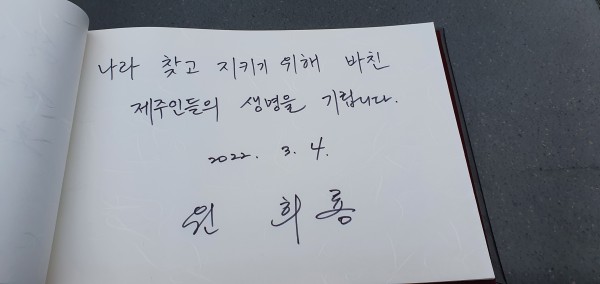 나라 찾고 지키기 위해 바친
제주인들의 생명을 기립니다.
2022. 3. 4.
원 희 룡